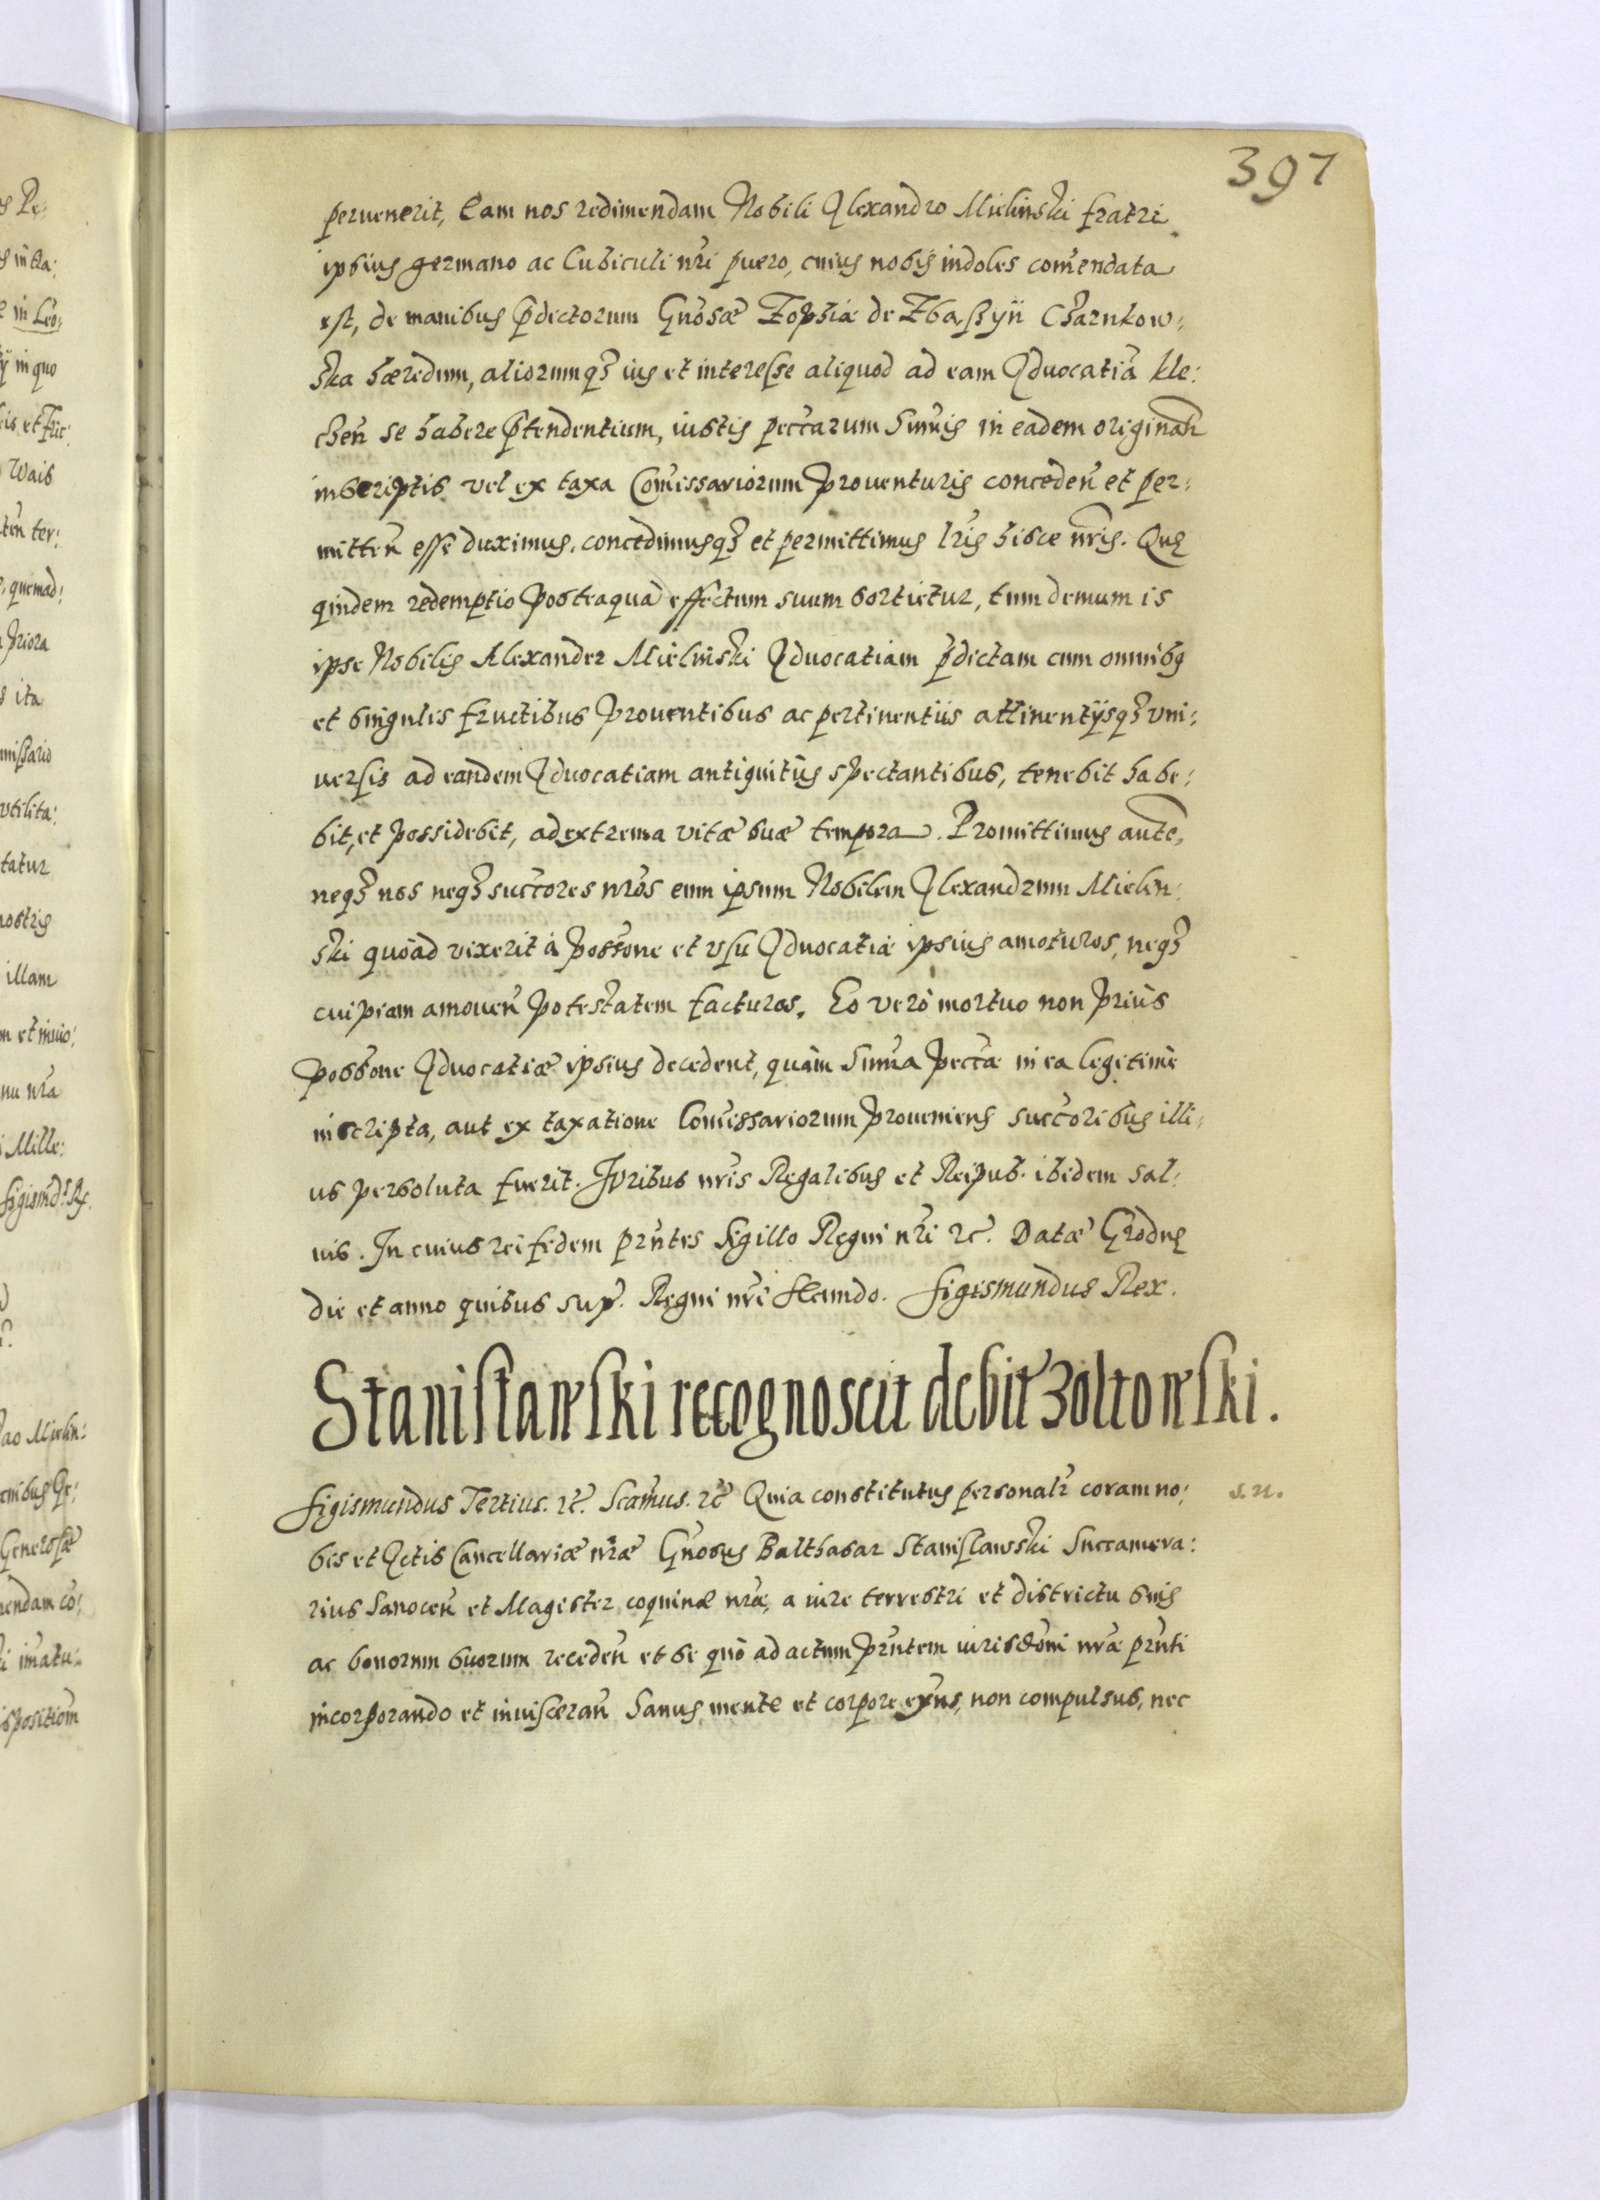 397
pervenerit, Eam nos redimendam Nobili Alexandro Mielinski fratri
ipsius germano ac Cubiculi nri puero, cuius nobis indoles comendata
est, de manibus pdictorum Gnosæ Zophiæ de Zbaßyn Charnkow:
ska hæredum, aliorumq3 ius et interesse aliquod ad eam Advocatiā Kle:
chen̄ se habere ptendentium, iustis peccarum Sum̄is in eadem originalr̄
inscriptis vel ex taxa Com̄issariorum prouenturis conceden̄ et per:
mitten̄ esse duximus, concedimusq3 et permittimus lris hisce nris. Quę
quidem redemptio posteaquā effectum suum sortietur, tum demum is
ipse Nobilis Alexander Mielinski Advocatiam pdictam cum omnibq
et singulis fructibus prouentibus ac pertinentiis attinentÿsq3 vni:
uersis ad eandem Advocatiam antiquitùs spectantibus, tenebit habe:
bit, et possidebit, ad extrema vitæ suæ tempora. Promittimus aute,
neq3 nos neq3 succores nros eum ipsum Nobilem Alexandrum Mielin:
ski quoad vixerit à possone et vsu Advocatiæ ipsius amoturos, neq3
cuipiam amouen̄ potestatem facturos. Eo verò mortuo non priùs
possone Advocatiæ ipsius decedent, quàm Sum̄a peccæ in ea legitimè
inscripta, aut ex taxatione Com̄issariorum proueniens succoribus illi:
us persoluta fuerit. Iuribus nris Regalibus et Reipub. ibidem sal:
uis. In cuius rei fidem prntes Sigillo Regni nri rc. Datæ Grodnę
die et anno quibus sup. Regni nri Suando. Sigismundus Rex.
Stanisławski recognoscit debit Zoltowski.
Sigismundus Tertius. rc. Scamus. rc Quia constitutus personalr coram no:
s. n.
bis et Actis Cancellariæ nræ Gnosus Balthasar Stanislawski Succamera:
rius Sanocen̄ et Magister coquinæ nræ, a iure terrestri et districtu suis
ac bonorum suorum receden̄ et se quò ad actum prntem iurisdoni nræ prnti
incorporando et inuisceran̄ Sanus mente et corpore exns, non compulsus, nec